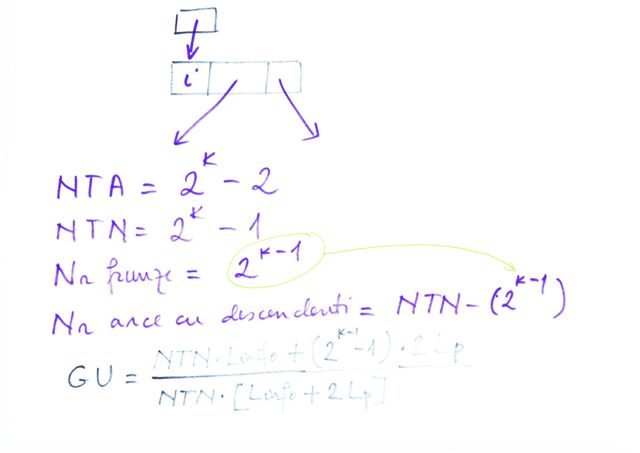 i
NTA = 2^k - 2
NTN = 2^k - 1
Nr frunze = 2^{k-1}
Nr arce cu descendenti = NTN - (2^{k-1})
GU = \frac{NTN · Linfo + (2^{k-1} - 1) · 2Lp}{NTN · [Linfo + 2Lp]}